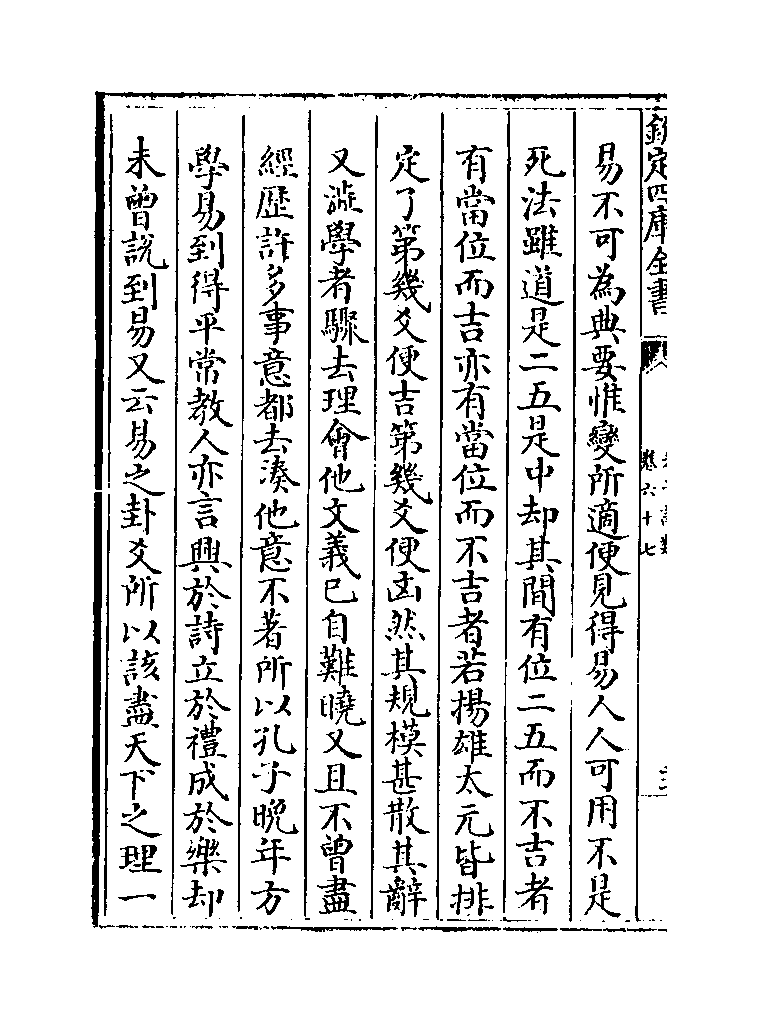 欽定四庫全書
卷六十七
易不可為典要惟變所適便見得易人人可用不是
死法雖道是二五是中却其間有位二五而不吉者
有當位而吉亦有當位而不吉者若揚雄太元皆排
定了第幾爻便吉第幾爻便凶然其規模甚散其辭
又澁學者驟去理會他文義已自難曉又且不曾盡
經歷許多事意都去湊他意不著所以孔子晚年方
學易到得平常教人亦言興於詩立於禮成於樂却
未曾說到易又云易之卦爻所以該盡天下之理一